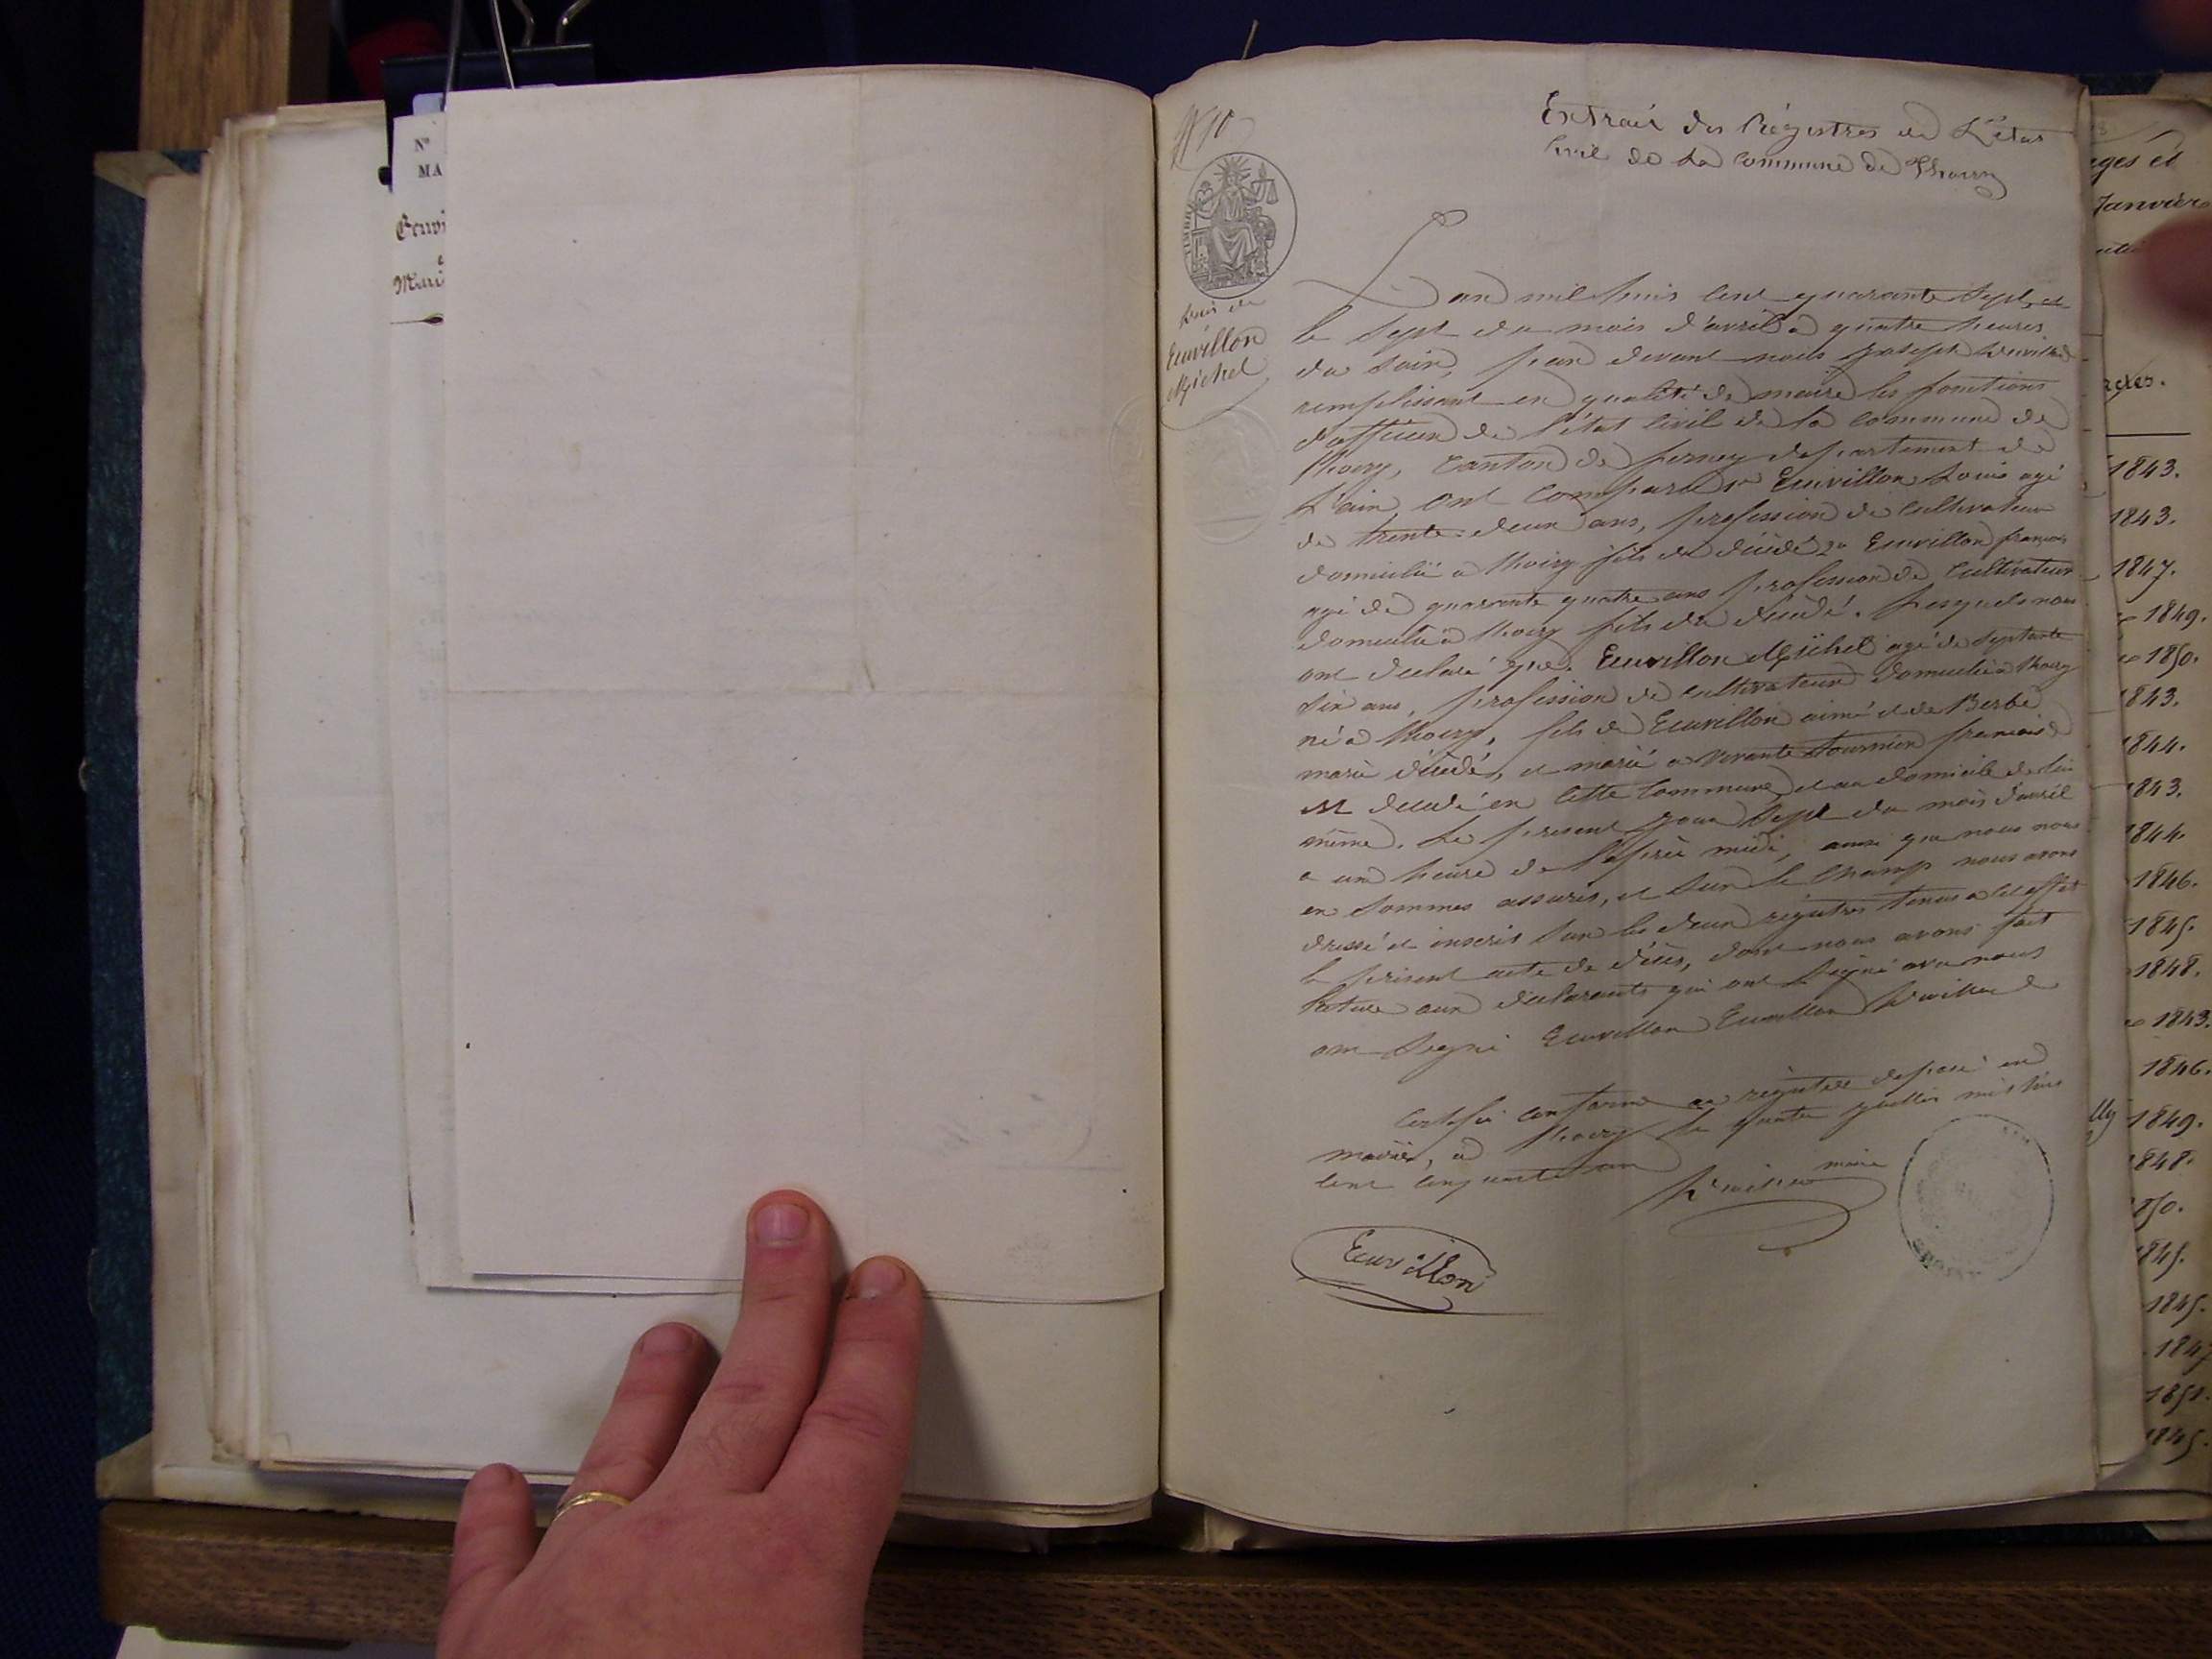 N°
MA
Mari
N° 10
Extrait des Régistres de L'état
Civil de la Commune de Thoiry
TIMBRE
Décès de
Ecuvillon
Michel
L'an mil huit cent quarante sept, et
le sept du mois d'avril à quatre heures
du soir, par devant nous Joseph
remplissant en qualité de maire les fonctions
d'officier de l'état civil de la commune de
Thoiry, canton de ferney departement de
L'ain, ont comparu 1° Ecuvillon Louis agé
de trente deux ans, profession de cultivateur
domicilié à thoiry fils de décédé 2° Ecuvillon françois
agé de quarante quatre ans profession de cultivateur
domicilié à thoiry fils de décédé. Lesquels nous
ont declaré que Ecuvillon Michel agé de septante
six ans, profession de cultivateur domicilié à thoiry
né à thoiry, fils de Ecuvillon aimé et de Barbe
marie décédés, et marié a vivante fournier françoise
est decedé en cette commune, et au domicile de lui
même. Le present jour sept du mois d'avril
a une heure de l'après midi, ainsi que nous nous
en sommes assurés, et sur le champ nous avons
dressé et inscrit sur les deux régistres tenus a cet effet
le présent acte de décès, dont nous avons fait
lecture aux déclarants qui ont signé avec nous
ont signé Ecuvillon Ecuvillon
Certifié conforme au régistre deposé en
mairie, à thoiry le quatre juillet mil huit
cent cinquante un
maire
Ecuvillon
ges et
Janvier
actes.
1843.
1843.
1847.
1849.
1850.
1843.
1844.
1843.
1844.
1846.
1845.
1848.
1843.
1846.
1849.
1848.
1850.
1845.
1845.
1847
1851.
1845.